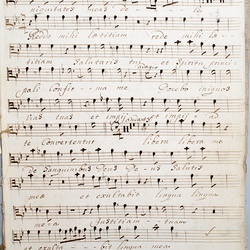 iniquitates meas dele
Redde mihi lætitiam rede mihi læ
titiam Salutaris tui et Spiritu princi
pali confirma me Docebo iniquos
vias tuas et impij et impij ad
te convertentur libera libera me
de Sanguinibus Deus Deus Salutis
meæ et exultabit lingua lingua
mea Justitiam tuam
et exulta bit lingua mea